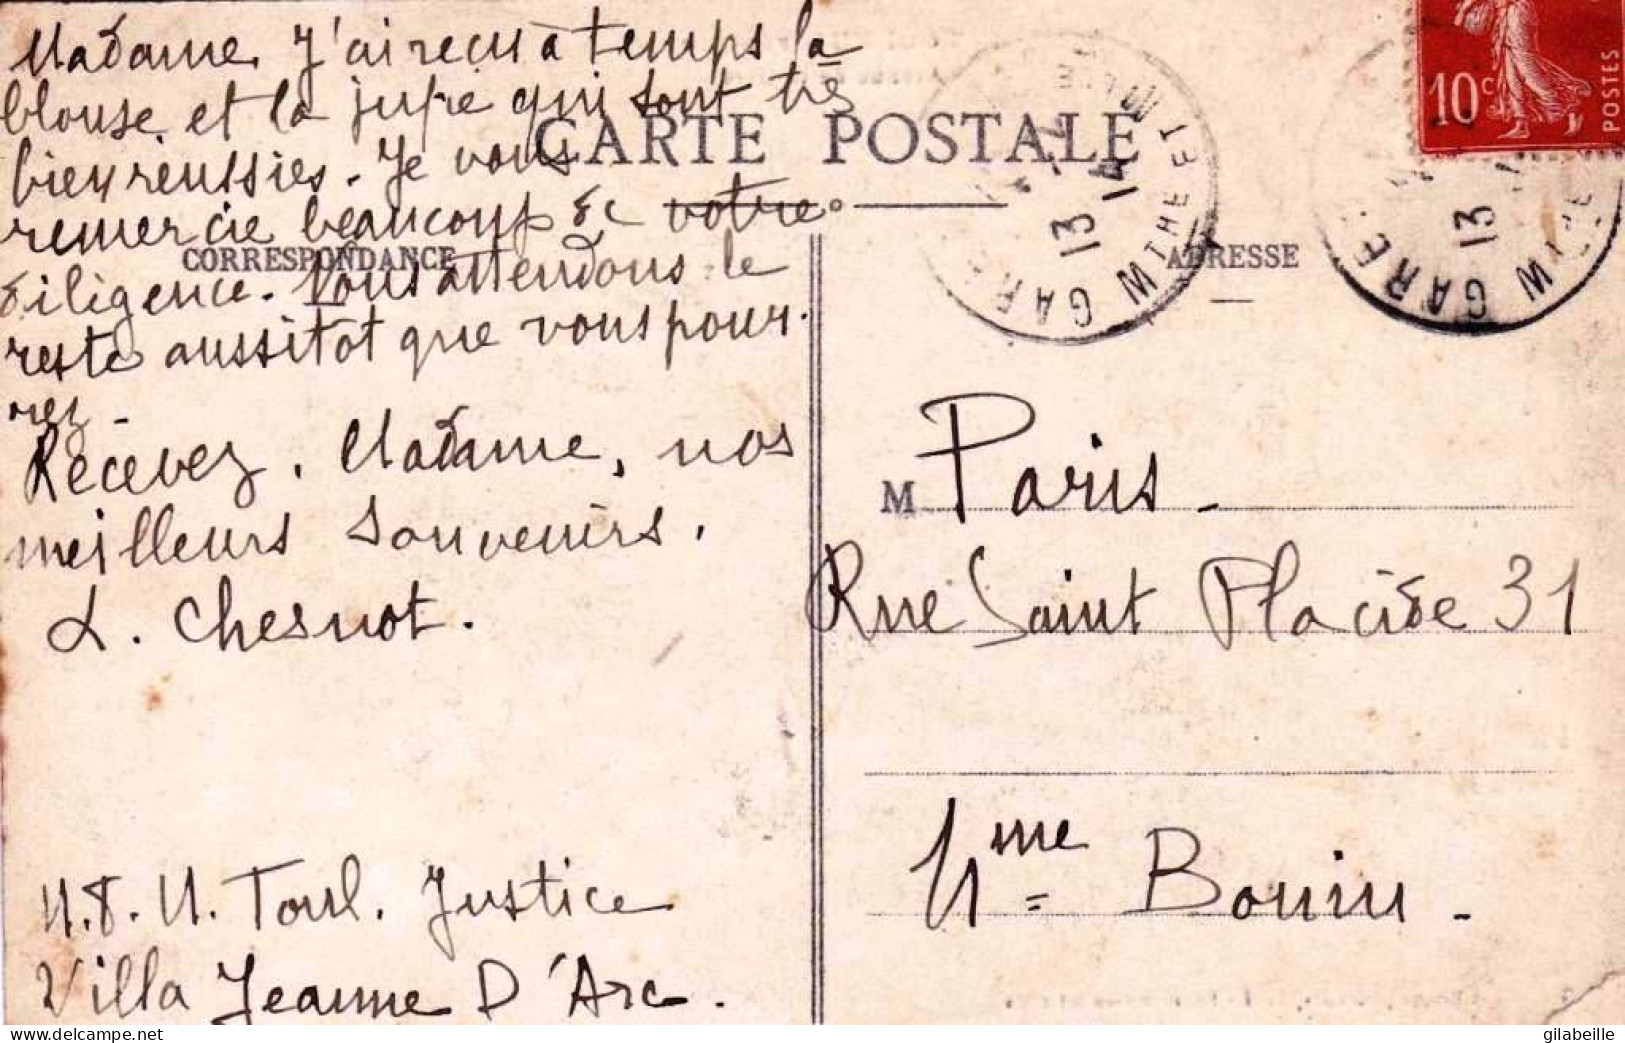 Madame. J'ai reçu à temps la
blouse et la jupe qui sont très
bien réussies. Je vous
remercie beaucoup de votre
diligence. Nous attendons le
reste aussitôt que vous pour-
rez.
Recevez, Madame, nos
meilleurs souvenirs.
L. Chesnot.
M. et. M. Toul. Justice
Villa Jeanne D'Arc.
CARTE POSTALE
CORRESPONDANCE
ADRESSE
10c
POSTES
13
GARE
13
GARE
M Paris -
Rue Saint Placide 31
Mme Bouin -
delcampe.net
gilabeille